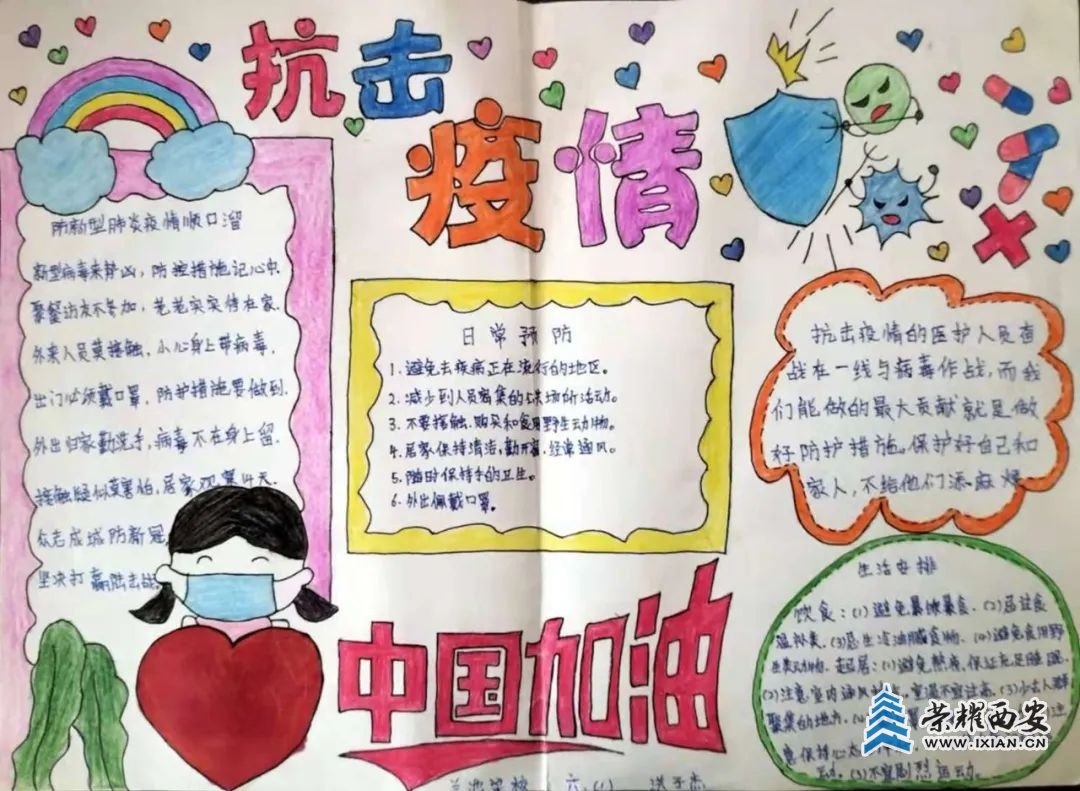 抗击
疫情
防新型肺炎疫情顺口溜
新型病毒来势凶，防控措施记心中.
聚餐访友不参加，老老实实待在家.
外来人员莫接触，小心身上带病毒.
出门必须戴口罩，防护措施要做到.
外出归家勤洗手，病毒不在身上留.
接触疑似莫害怕，居家观察14天.
众志成城防新冠
坚决打赢阻击战
日常预防
1.避免去疾病正在流行的地区。
2.减少到人员密集的公共场所活动。
3.不要接触.购买和食用野生动物。
4.居家保持清洁，勤开窗，经常通风。
5.随时保持手的卫生。
6.外出佩戴口罩。
抗击疫情的医护人员奋
战在一线与病毒作战，而我
们能做的最大贡献就是做
好防护措施。保护好自己和
家人，不给他们添麻烦
生活安排
饮食：(1)避免暴饮暴食、(2)忌过食
温补类、(3)忌生冷油腻食物、(4)避免食用野
生类动物、起居：(1)避免熬夜，保证充足睡眠.
(2)注意室内通风，室温不宜过高、(3)少去人群
聚集的地方、
意保持心
(3)不宜剧烈运动。
中国加油
六.(1)
荣耀西安
WWW.IXIAN.CN